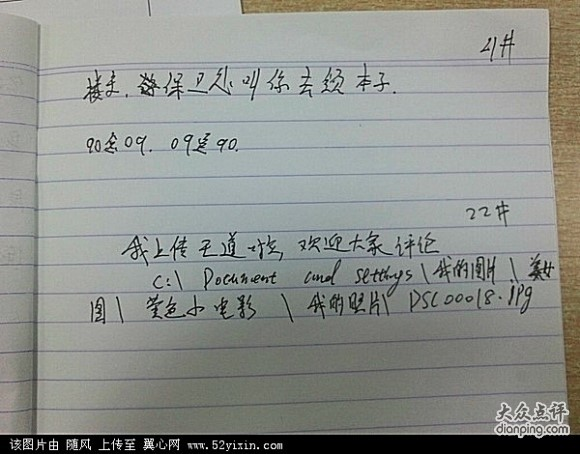 21#
楼主，保卫处叫你去领本子.
90是09. 09是90.
22#
我上传 欢迎大家评论
C:\ Document and settings\我的图片\美女
图\ 黄色小电影 \ 我的照片\ DSC00018.jpg
大众点评
dianping.com
该图片由 随风 上传至 翼心网 www.52yixin.com